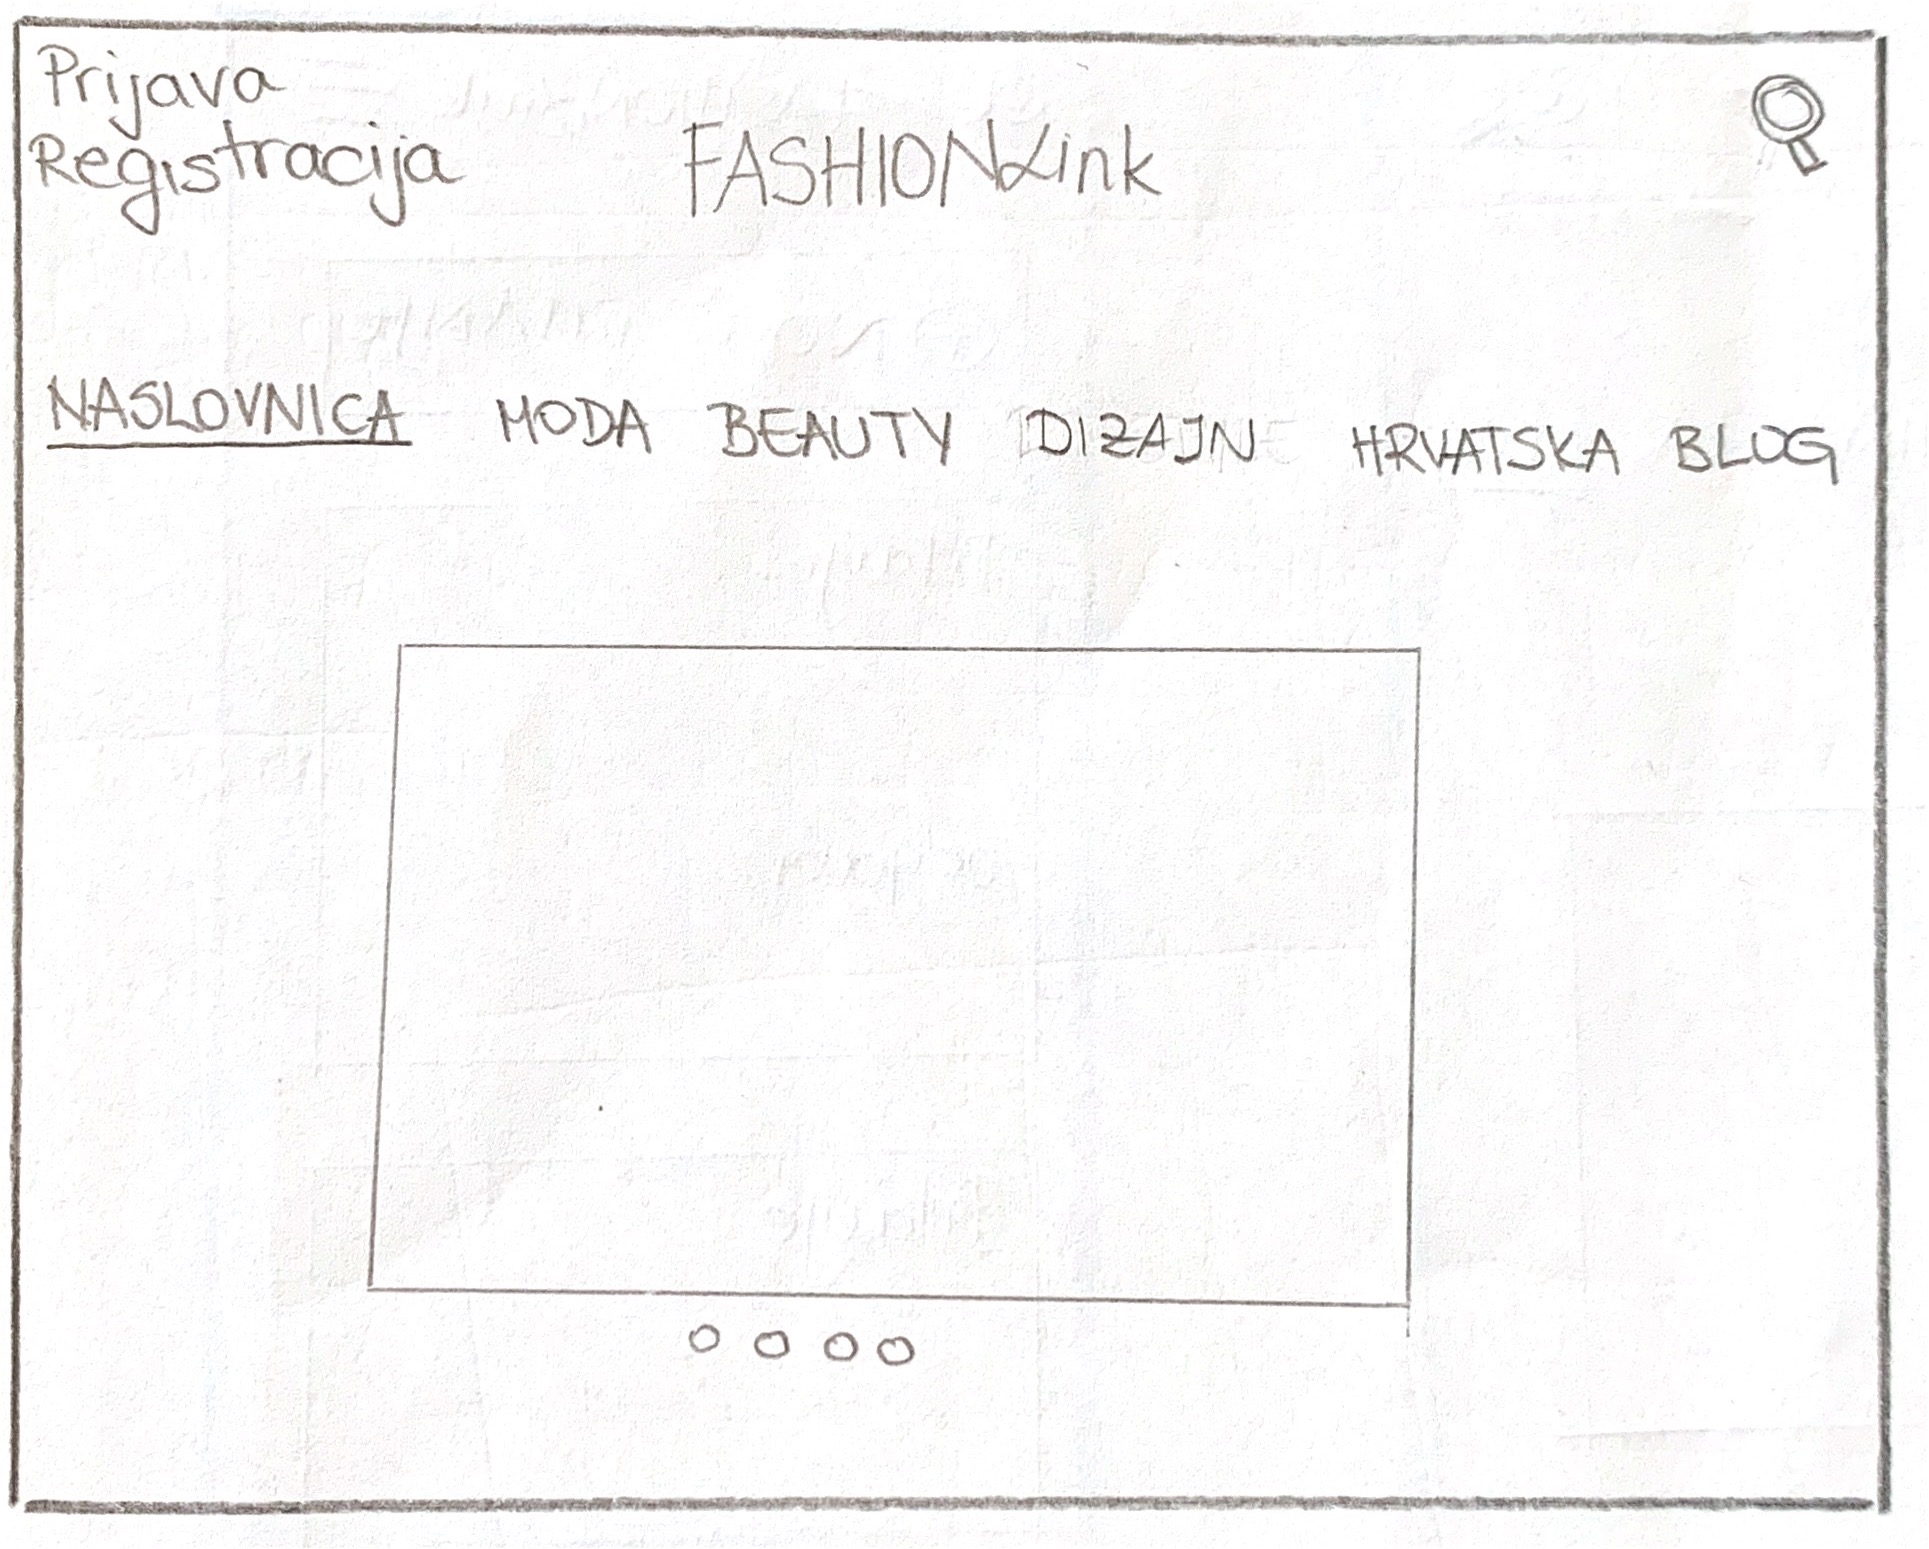 Prijava
Registracija
FASHIONLink
NASLOVNICA MODA BEAUTY DIZAJN HRVATSKA BLOG